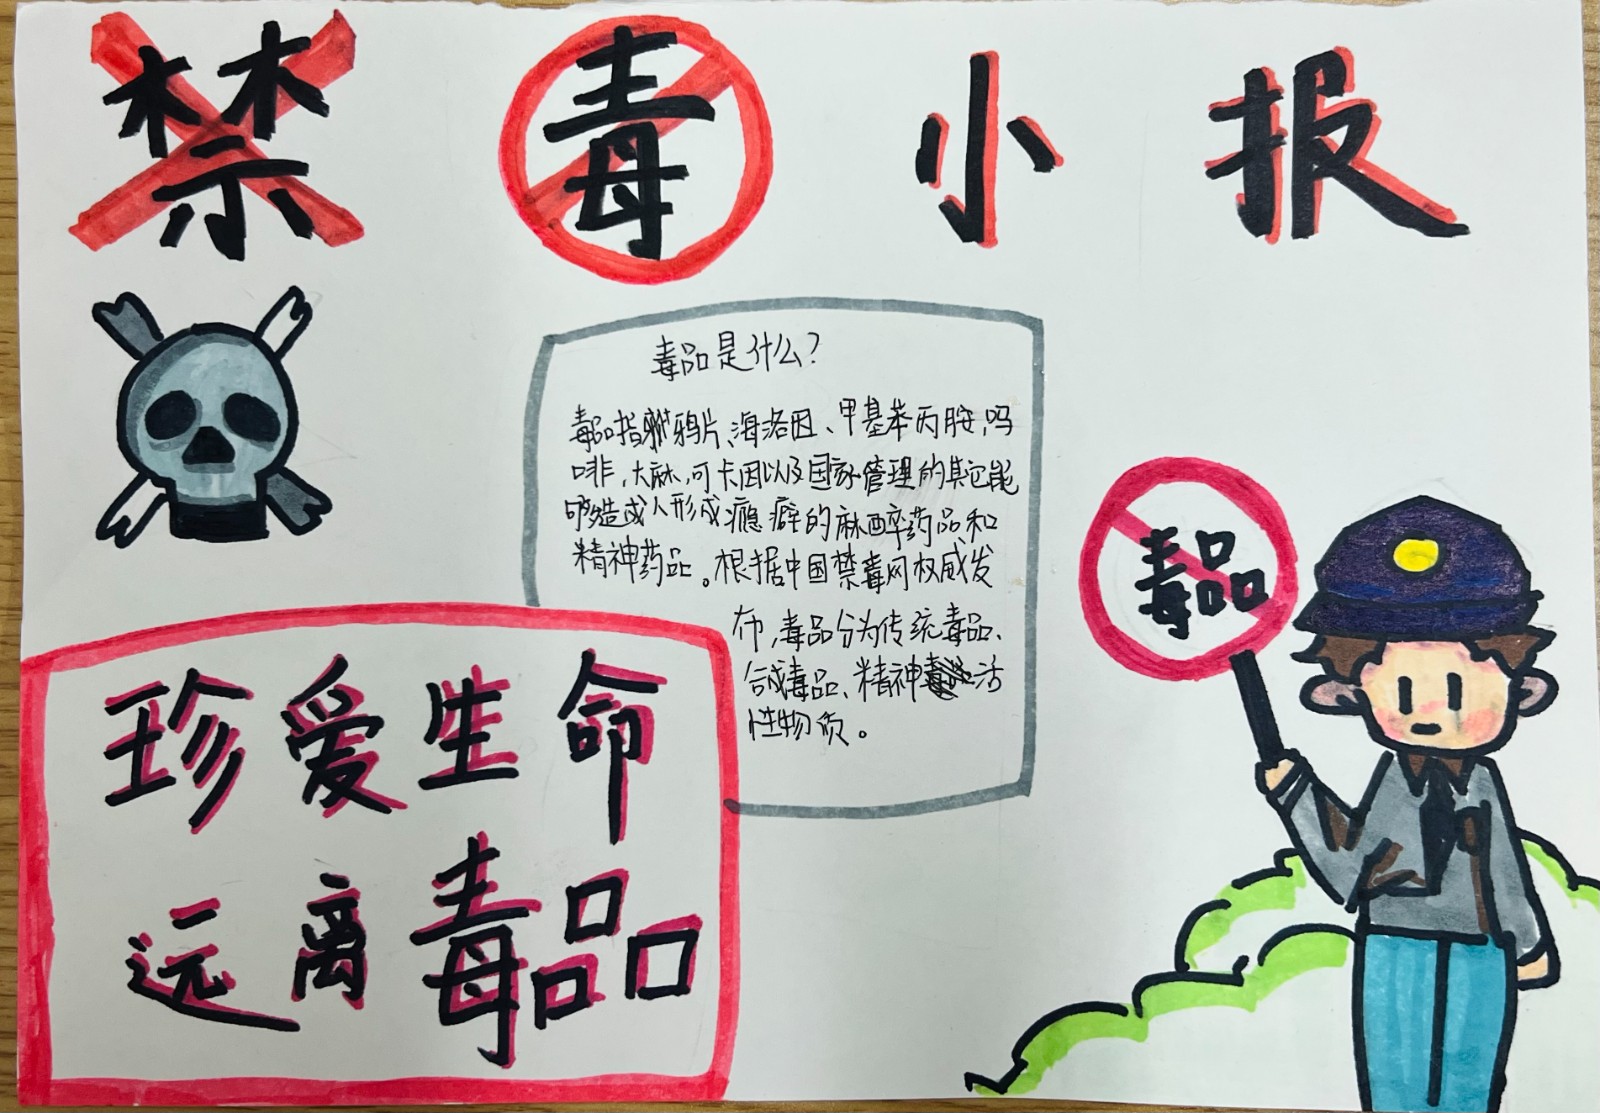 禁毒小报
毒品是什么？
毒品指鸦片、海洛因、甲基苯丙胺，吗
啡，大麻，可卡因以及国家管理的其它能
够造成人形成瘾癖的麻醉药品和
精神药品。根据中国禁毒网权威发
布，毒品分为传统毒品、
合成毒品、精神活
性物质。
毒品
珍爱生命
远离毒品